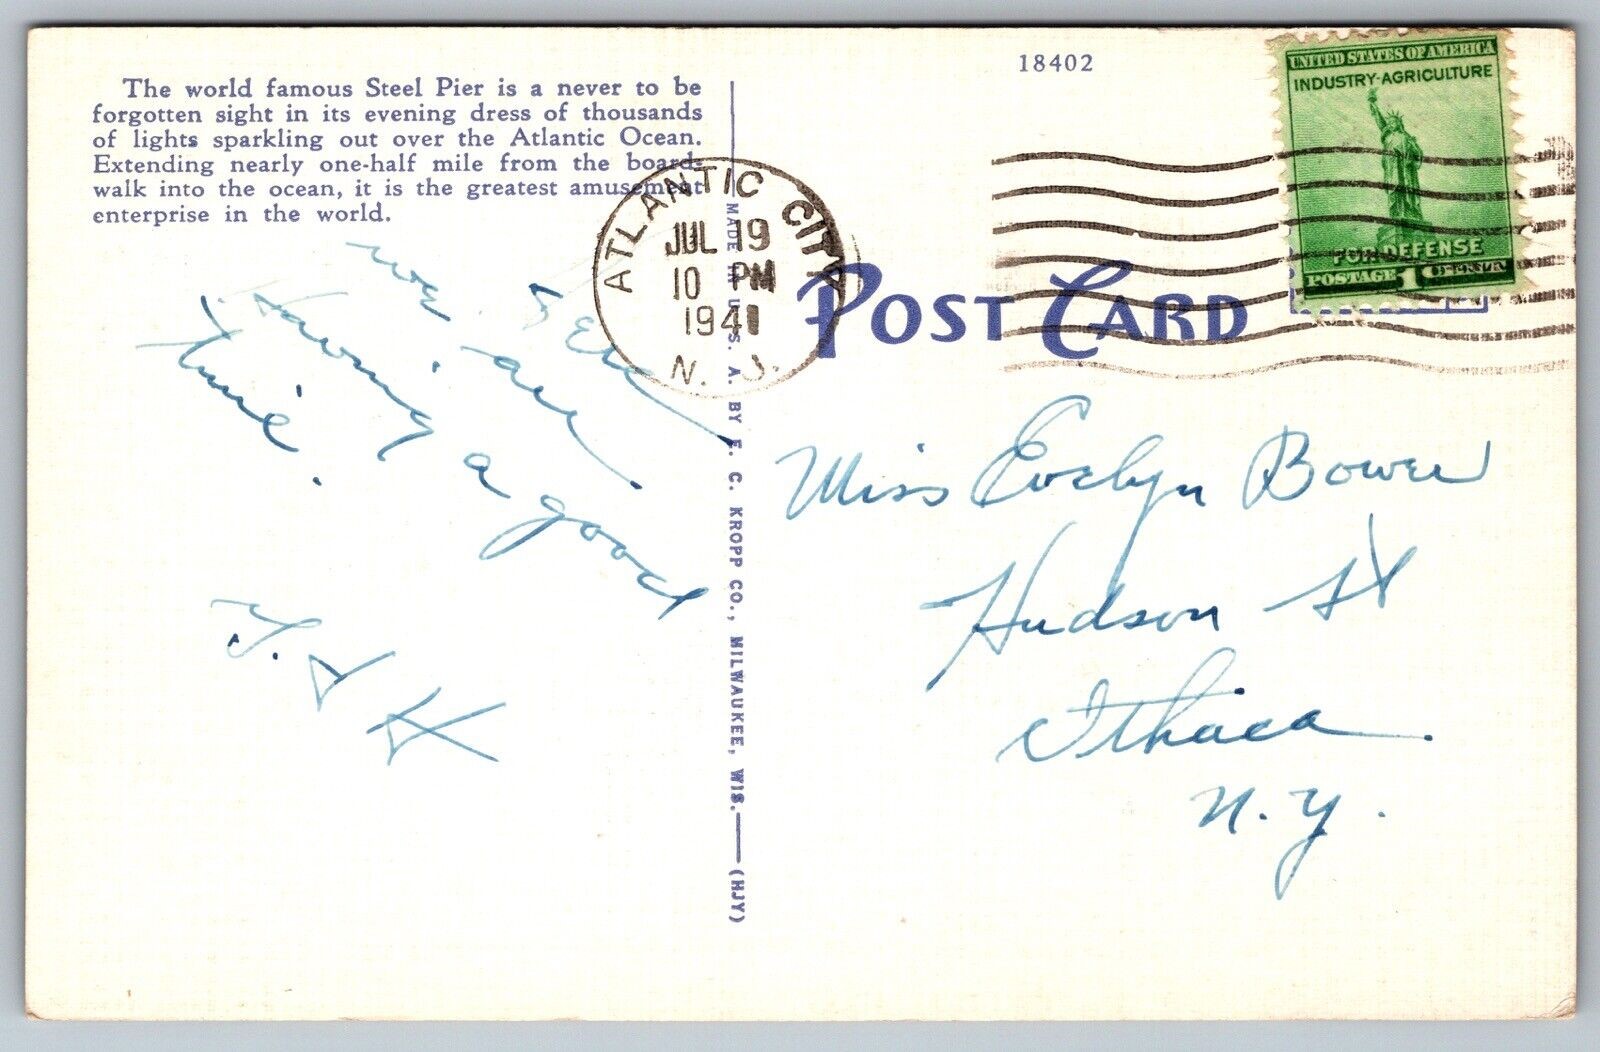 The world famous Steel Pier is a never to be
forgotten sight in its evening dress of thousands
of lights sparkling out over the Atlantic Ocean.
Extending nearly one-half mile from the board-
walk into the ocean, it is the greatest amusement
enterprise in the world.
we are
Having a good
time.
MADE IN U. S. A. BY E. C. KROPP CO., MILWAUKEE, WIS.—(HJY)
18402
ATLANTIC CITY
JUL 19
10 PM
1941
N. J.
POST CARD
UNITED STATES OF AMERICA
INDUSTRY-AGRICULTURE
FOR DEFENSE
POSTAGE 1 CENT
Miss Evelyn Bower
Hudson St
Ithaca.
N. Y.